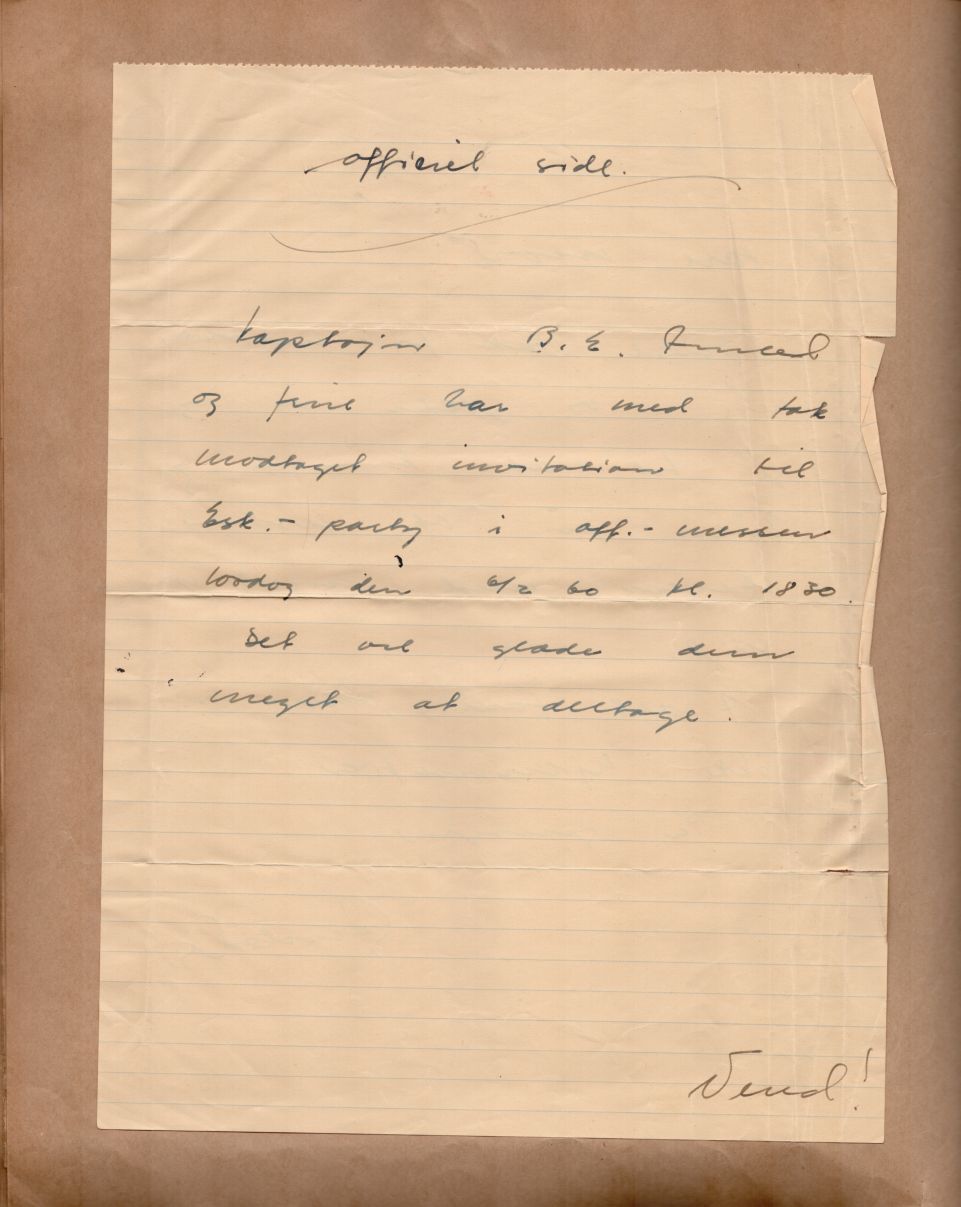 officiel side.
Kaptajn B. E.
og frue har med tak
modtaget invitation til
Esk.- party i off.- messen
lørdag den 6/2 60 kl. 1830.
Det vil glæde dem
meget at deltage.
Vend!